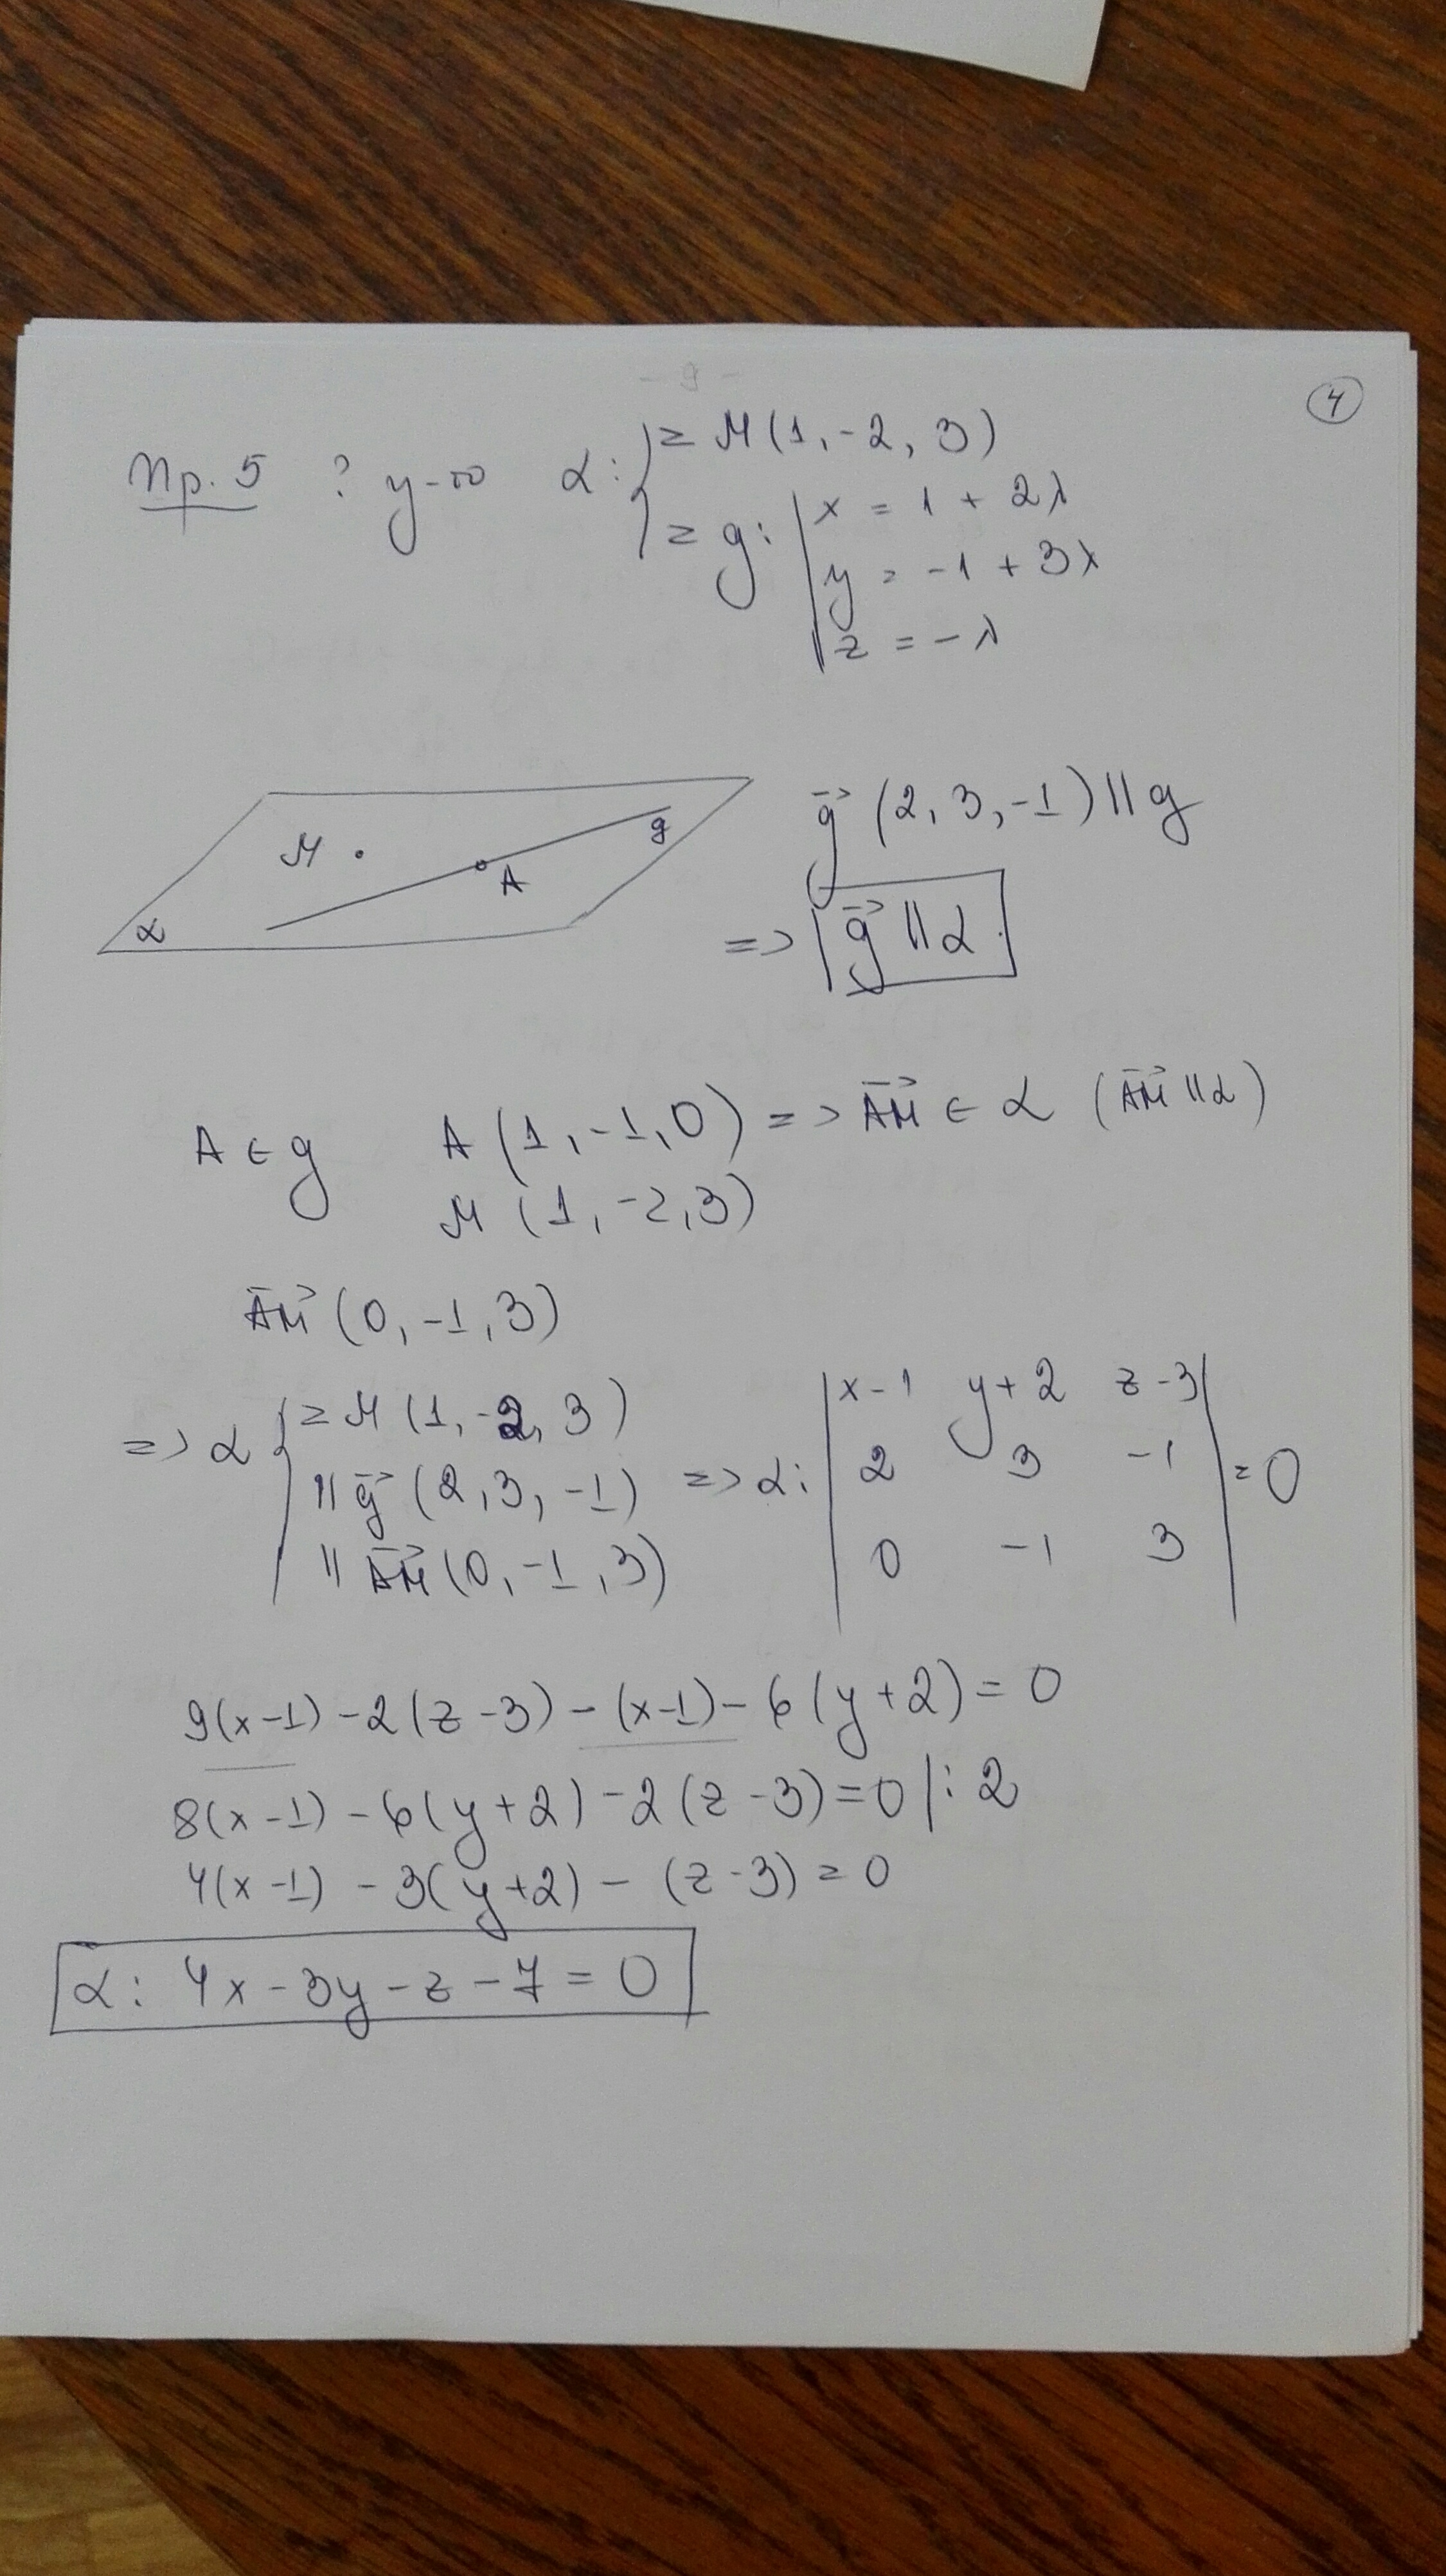 4
Пр. 5 ? у-ие α: { z M(1, -2, 3)
z g: | x = 1 + 2λ
y = -1 + 3λ
z = -λ
M
g
A
α
g⃗ (2, 3, -1) || g
=> g⃗ || α
A ∈ g A (1, -1, 0) => AM⃗ ∈ α (AM⃗ || α)
M (1, -2, 3)
AM⃗ (0, -1, 3)
=> α { z M (1, -2, 3)
|| g⃗ (2, 3, -1)
|| AM⃗ (0, -1, 3)
=> α: | x-1 y+2 z-3 |
| 2 3 -1 | = 0
| 0 -1 3 |
9(x-1) - 2(z-3) - (x-1) - 6(y+2) = 0
8(x-1) - 6(y+2) - 2(z-3) = 0 |: 2
4(x-1) - 3(y+2) - (z-3) = 0
α: 4x - 3y - z - 7 = 0